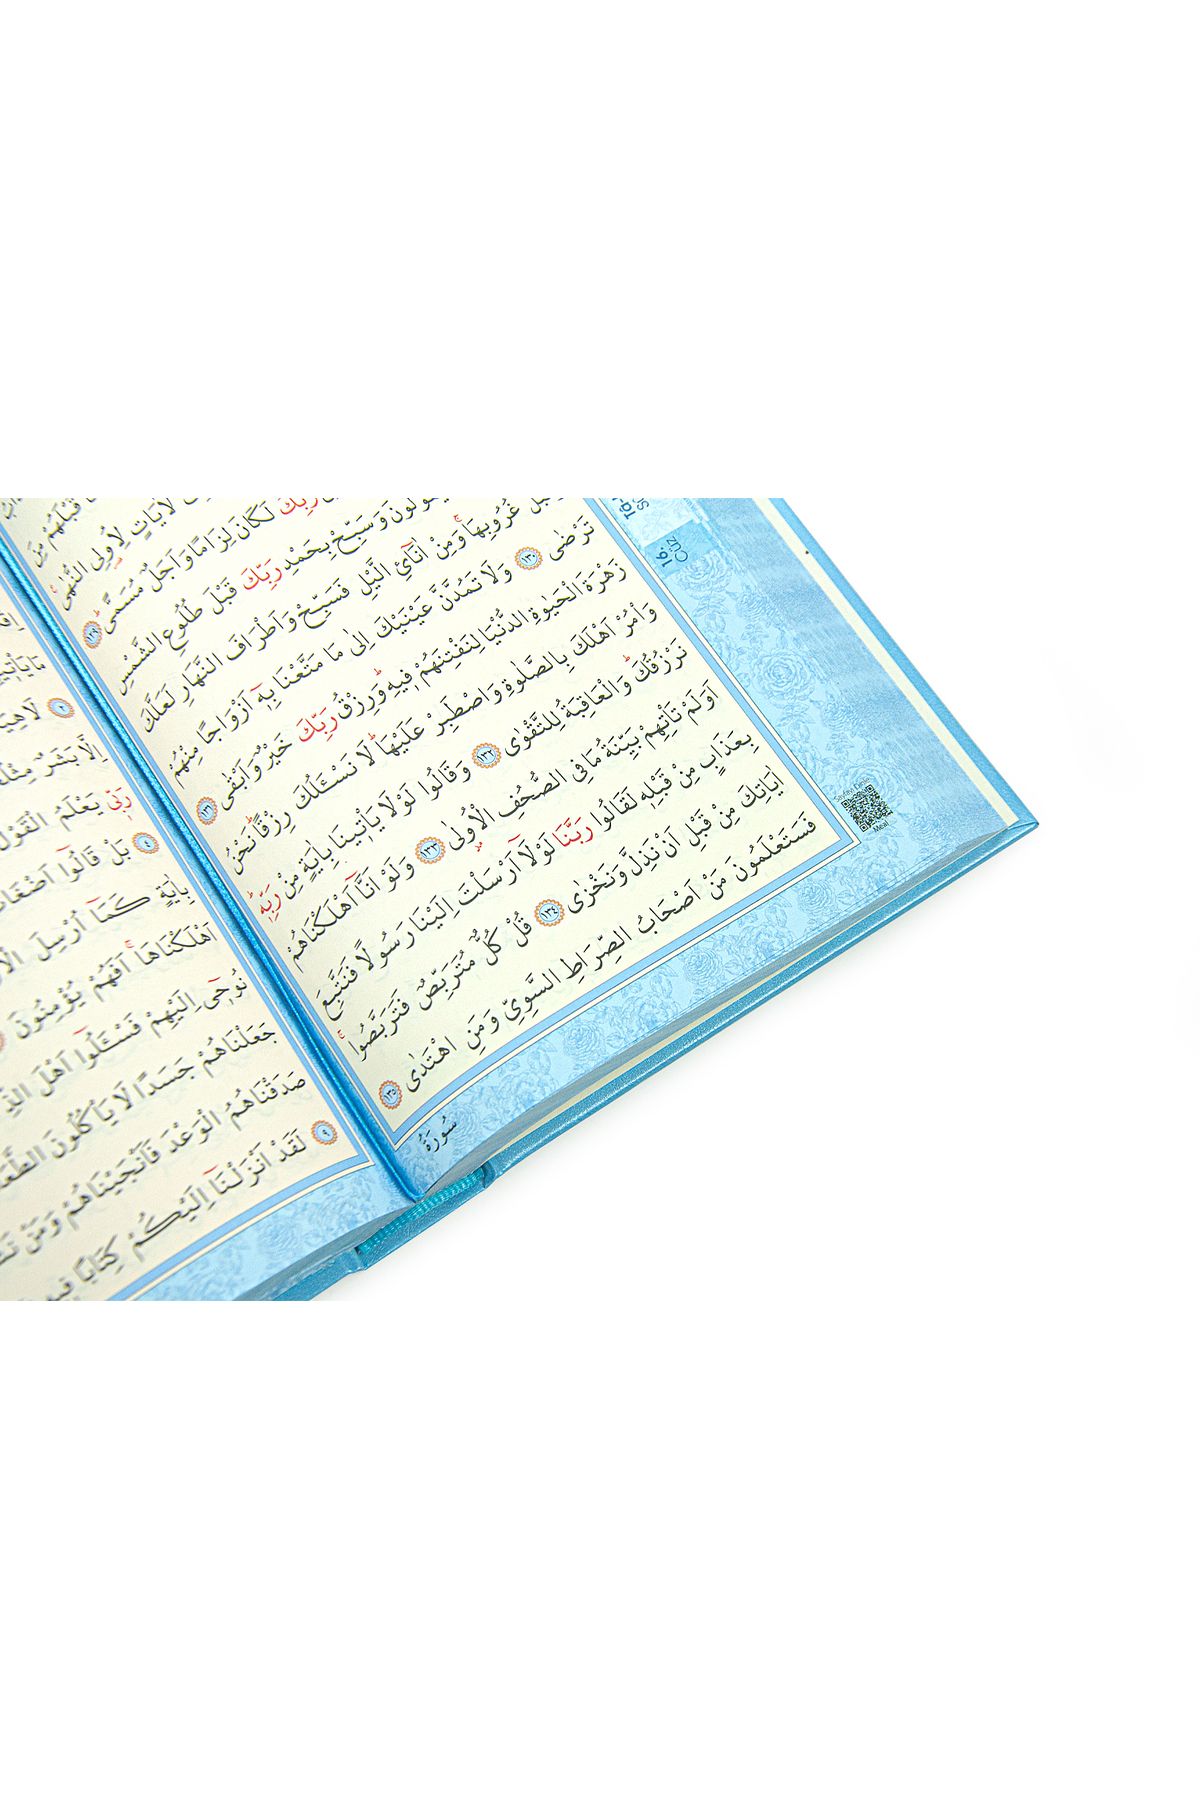 قَبْلَهُمْ مِنَ
لَاٰيَاتٍ لِاُولِى النُّهٰى
رَبِّكَ لَكَانَ لِزَامًا وَاَجَلٌ مُسَمًّىۜ ﴿١٢٩﴾
وَسَبِّحْ بِحَمْدِ رَبِّكَ قَبْلَ طُلُوعِ الشَّمْسِ
غُرُوبِهَاۚ وَمِنْ اٰنَٓائِ الَّيْلِ فَسَبِّحْ وَاَطْرَافَ النَّهَارِ لَعَلَّكَ
تَرْضٰى ﴿١٣٠﴾ وَلَا تَمُدَّنَّ عَيْنَيْكَ اِلٰى مَا مَتَّعْنَا بِه۪ٓ اَزْوَاجًا مِنْهُمْ
زَهْرَةَ الْحَيٰوةِ الدُّنْيَا لِنَفْتِنَهُمْ ف۪يهِۜ وَرِزْقُ رَبِّكَ خَيْرٌ وَاَبْقٰى ﴿١٣١﴾
وَأْمُرْ اَهْلَكَ بِالصَّلٰوةِ وَاصْطَبِرْ عَلَيْهَاۜ لَا نَسْـَٔلُكَ رِزْقًاۜ نَحْنُ
نَرْزُقُكَۜ وَالْعَاقِبَةُ لِلتَّقْوٰى ﴿١٣٢﴾ وَقَالُوا لَوْلَا يَأْت۪ينَا بِاٰيَةٍ مِنْ رَبِّه۪ۜ
اَوَلَمْ تَأْتِهِمْ بَيِّنَةُ مَا فِى الصُّحُفِ الْاُو۫لٰى ﴿١٣٣﴾ وَلَوْ اَنَّٓا اَهْلَكْنَاهُمْ
بِعَذَابٍ مِنْ قَبْلِه۪ لَقَالُوا رَبَّنَا لَوْلَٓا اَرْسَلْتَ اِلَيْنَا رَسُولًا فَنَتَّبِعَ
اٰيَاتِكَ مِنْ قَبْلِ اَنْ نَذِلَّ وَنَخْزٰى ﴿١٣٤﴾ قُلْ كُلٌّ مُتَرَبِّصٌ فَتَرَبَّصُواۚ
فَسَتَعْلَمُونَ مَنْ اَصْحَابُ الصِّرَاطِ السَّوِىِّ وَمَنِ اهْتَدٰى ﴿١٣٥﴾
سُورَةُ
16.
Cüz
Meal
مَا يَأْت۪
﴿٢﴾ لَاهِيَةً
اِلَّا بَشَرٌ مِثْلُ
رَبّ۪ى يَعْلَمُ الْقَوْلَ
﴿٤﴾ بَلْ قَالُٓوا اَضْغَاثُ
بِاٰيَةٍ كَمَٓا اُرْسِلَ
اَهْلَكْنَاهَاۚ اَفَهُمْ يُؤْمِنُونَ
نُوح۪ٓى اِلَيْهِمْ فَسْـَٔلُٓوا اَهْلَ
جَعَلْنَاهُمْ جَسَدًا لَا يَأْكُلُونَ
صَدَقْنَاهُمُ الْوَعْدَ فَاَنْجَيْنَاهُمْ وَمَنْ
﴿٩﴾ لَقَدْ اَنْزَلْنَٓا اِلَيْكُمْ كِتَابًا